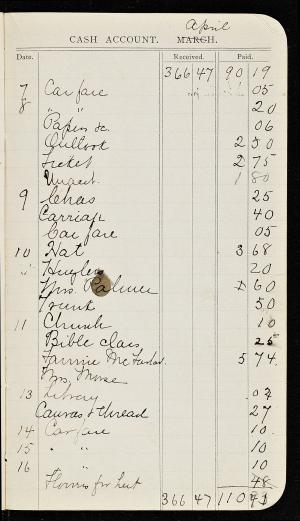 April
CASH ACCOUNT. MARCH.
Date. Received. Paid.
366 47 90 19
7 Car fare 05
8 " " 20
Papers &c. 06
Outlook 2 50
Ticket 2 75
1 80
9 Chas 25
Carriage 40
Car fare 05
10 Hat 3 68
" Huyler 20
Mrs. Palmer 1 60
Trunk 50
11 Church 10
Bible class 25
Fannie 5 74
Mrs. Morse
13 Library 02
Canvas & Thread 27
14 Car fare 10
15 " " 10
16 " " 10
Flowers for 48
366 47 110